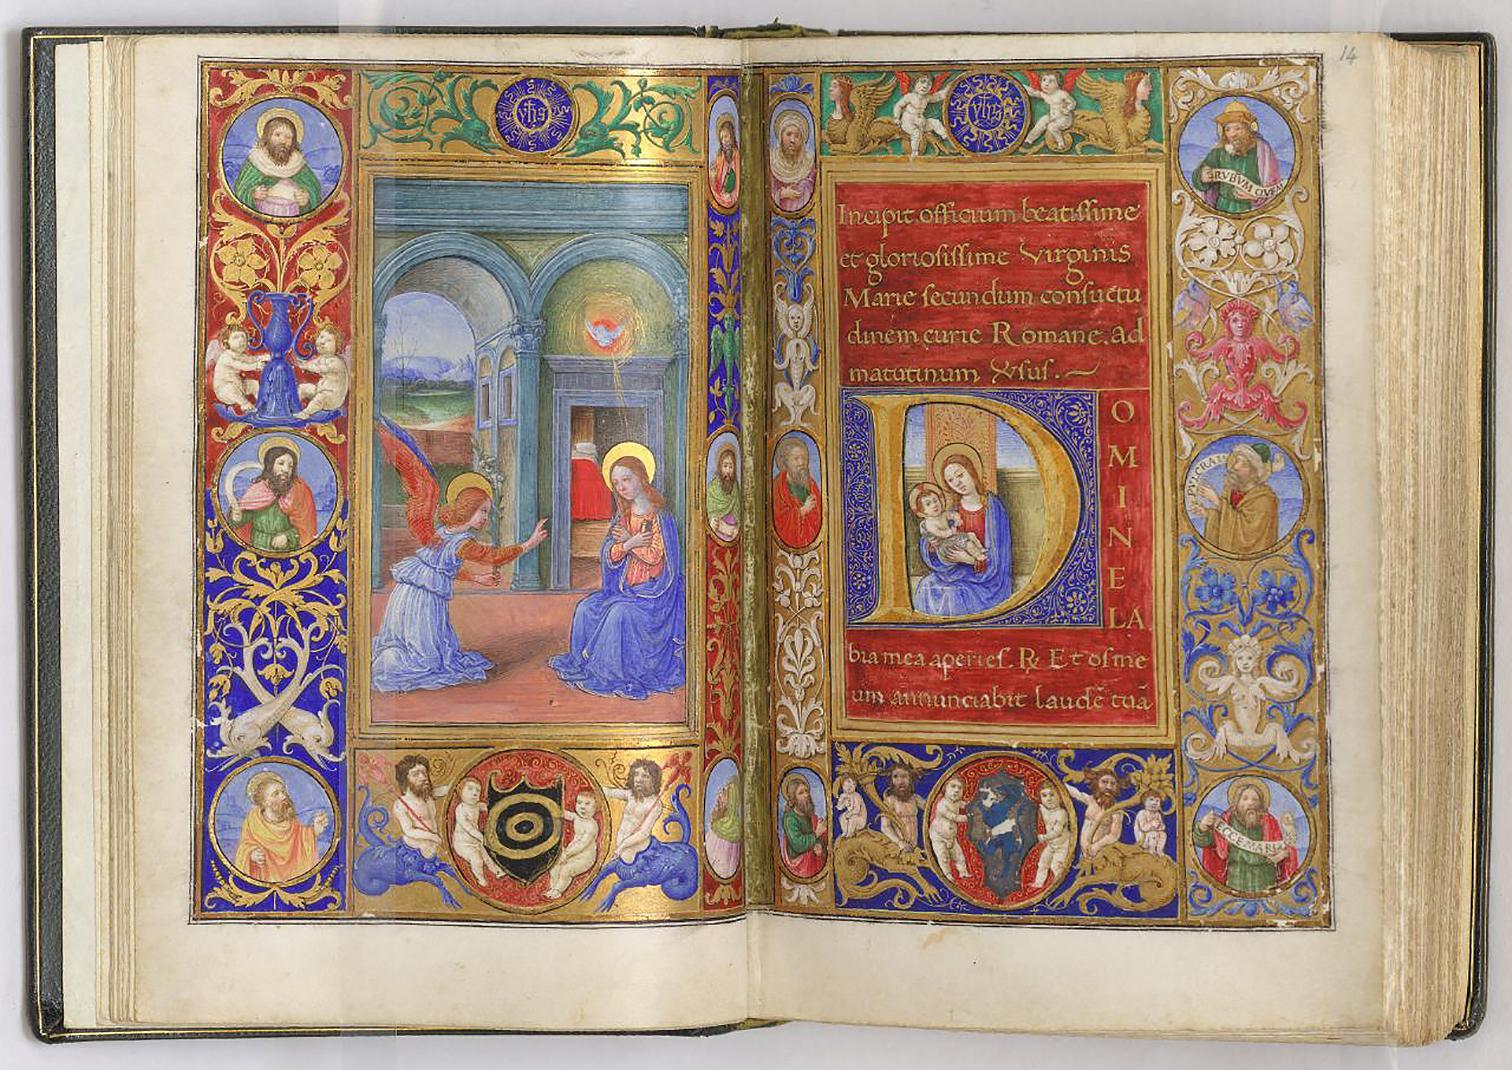 yhs
yhs
14
Incipit officium beatissime
et gloriosissime Virginis
Marie secundum consuetu
dinem curie Romane. ad
matutinum Vsus.
DOMINE LA
bia mea aperies. ℟ Et os me
um annunciabit laudē tuā
RVBVM QVEM
PVLCRA
ECCE MARIA